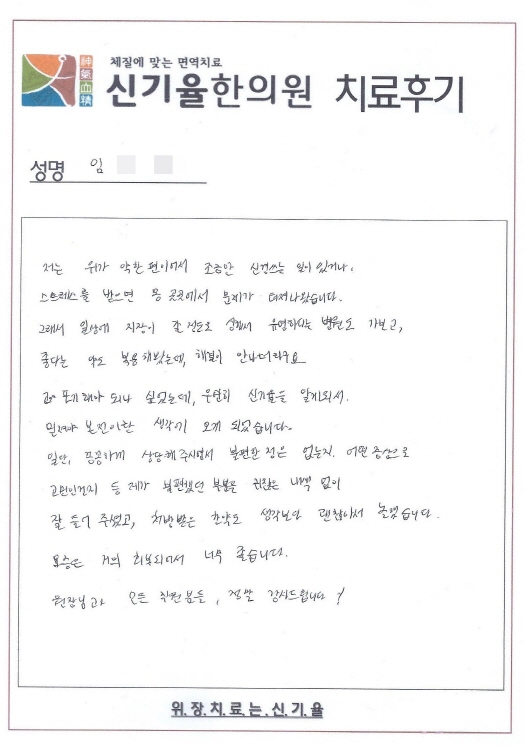 神氣血精
체질에 맞는 면역치료
신기율한의원 치료후기
성명 임
저는 위가 약한 편이어서 조금만 신경쓰는 일이 있거나,
스트레스를 받으면 몸 곳곳에서 문제가 터져나왔습니다.
그래서 일상에 지장이 갈 정도로 심해서 유명하다는 병원도 가보고,
좋다는 약도 복용해봤는데, 해결이 안나더라구요
포기해야 되나 싶었는데, 우연히 신기율을 알게되서.
밑져야 본전이란 생각에 오게 되었습니다.
일단, 꼼꼼하게 상담해주시면서 불편한 점은 없는지. 어떤 증상으로
고민인건지 등 제가 불편했던 부분을 귀찮은 내색 없이
잘 들어 주셨고, 처방받은 한약도 생각보다 괜찮아서 놀랐습니다.
요즘은 거의 회복되어서 너무 좋습니다.
원장님과 모든 직원분들, 정말 감사드립니다!
위.장.치.료.는.신.기.율